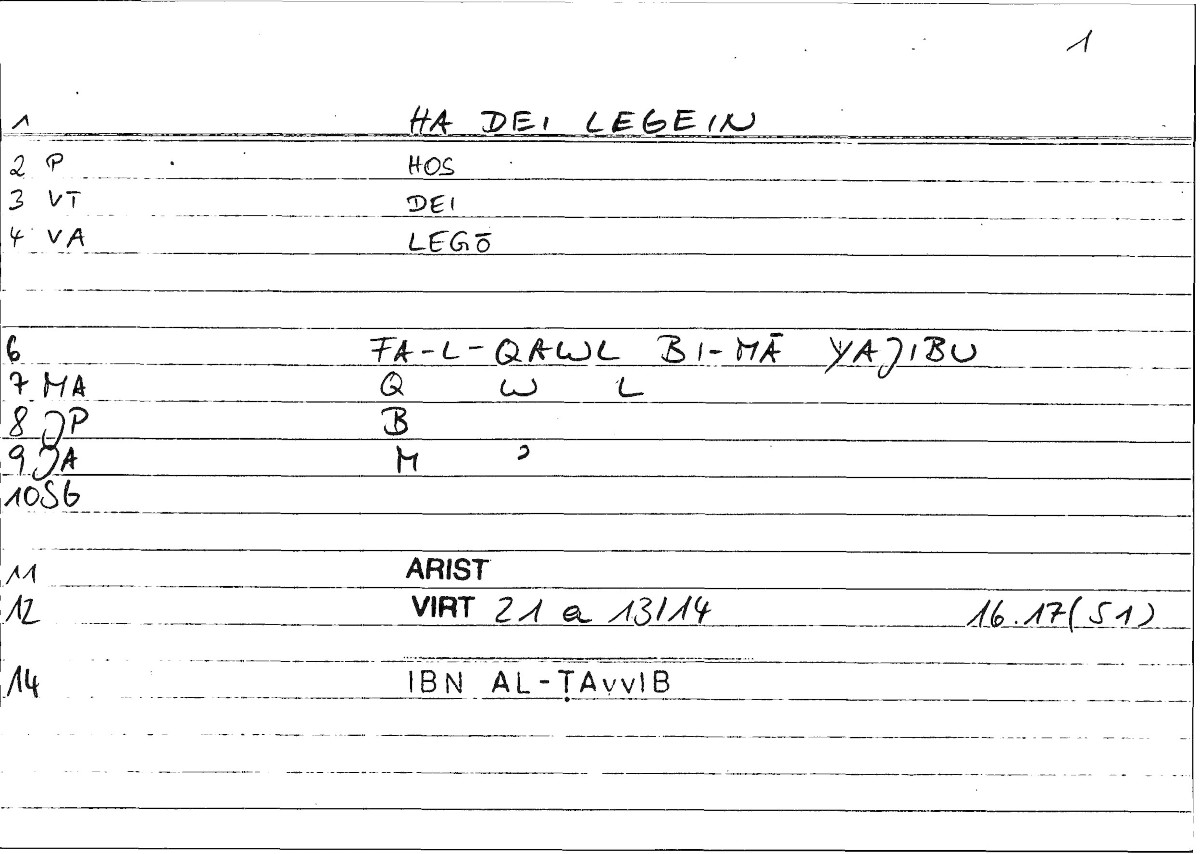 1
1 HA DEI LEGEIN
2 P HOS
3 VT DEI
4 VA LEGŌ
6 FA-L-QAWL BI-MĀ YAJIBU
7 MA Q W L
8 JP B
9 JA M ʾ
10 SG
11 ARIST
12 VIRT 21 a 13/14 16.17(S1)
14 IBN AL-ṬAYYIB